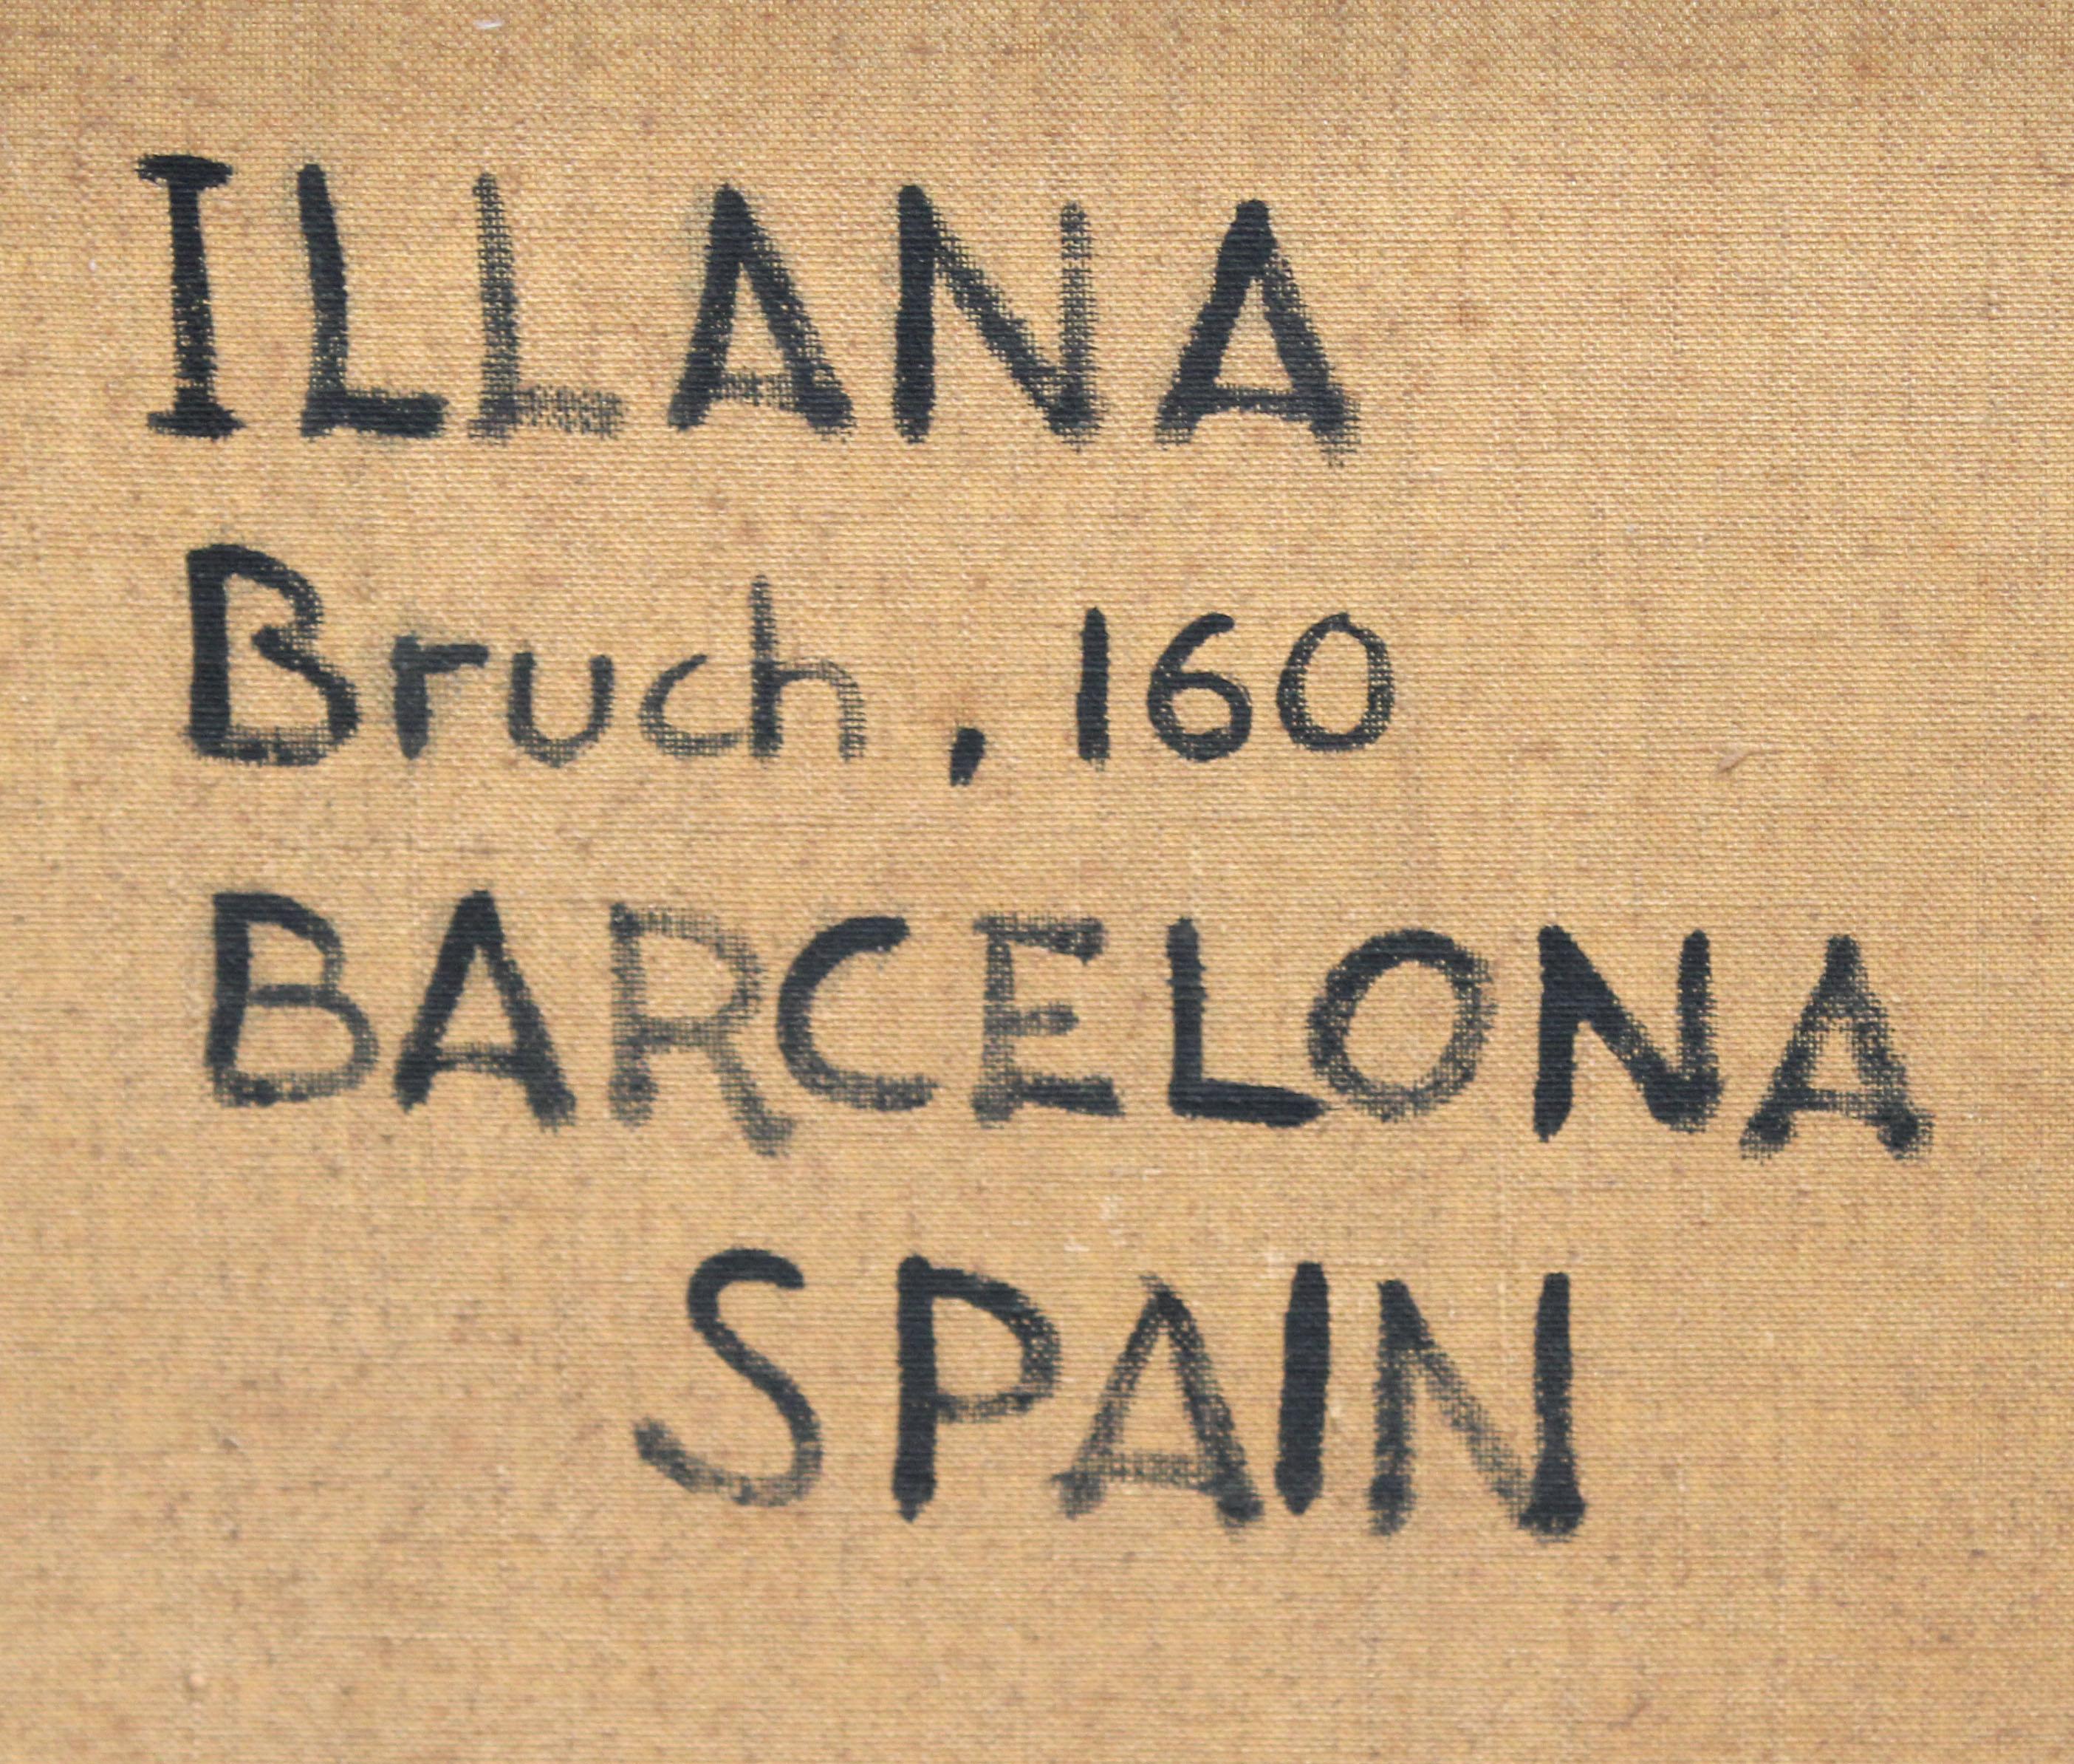 ILLANA
Bruch, 160
BARCELONA
SPAIN